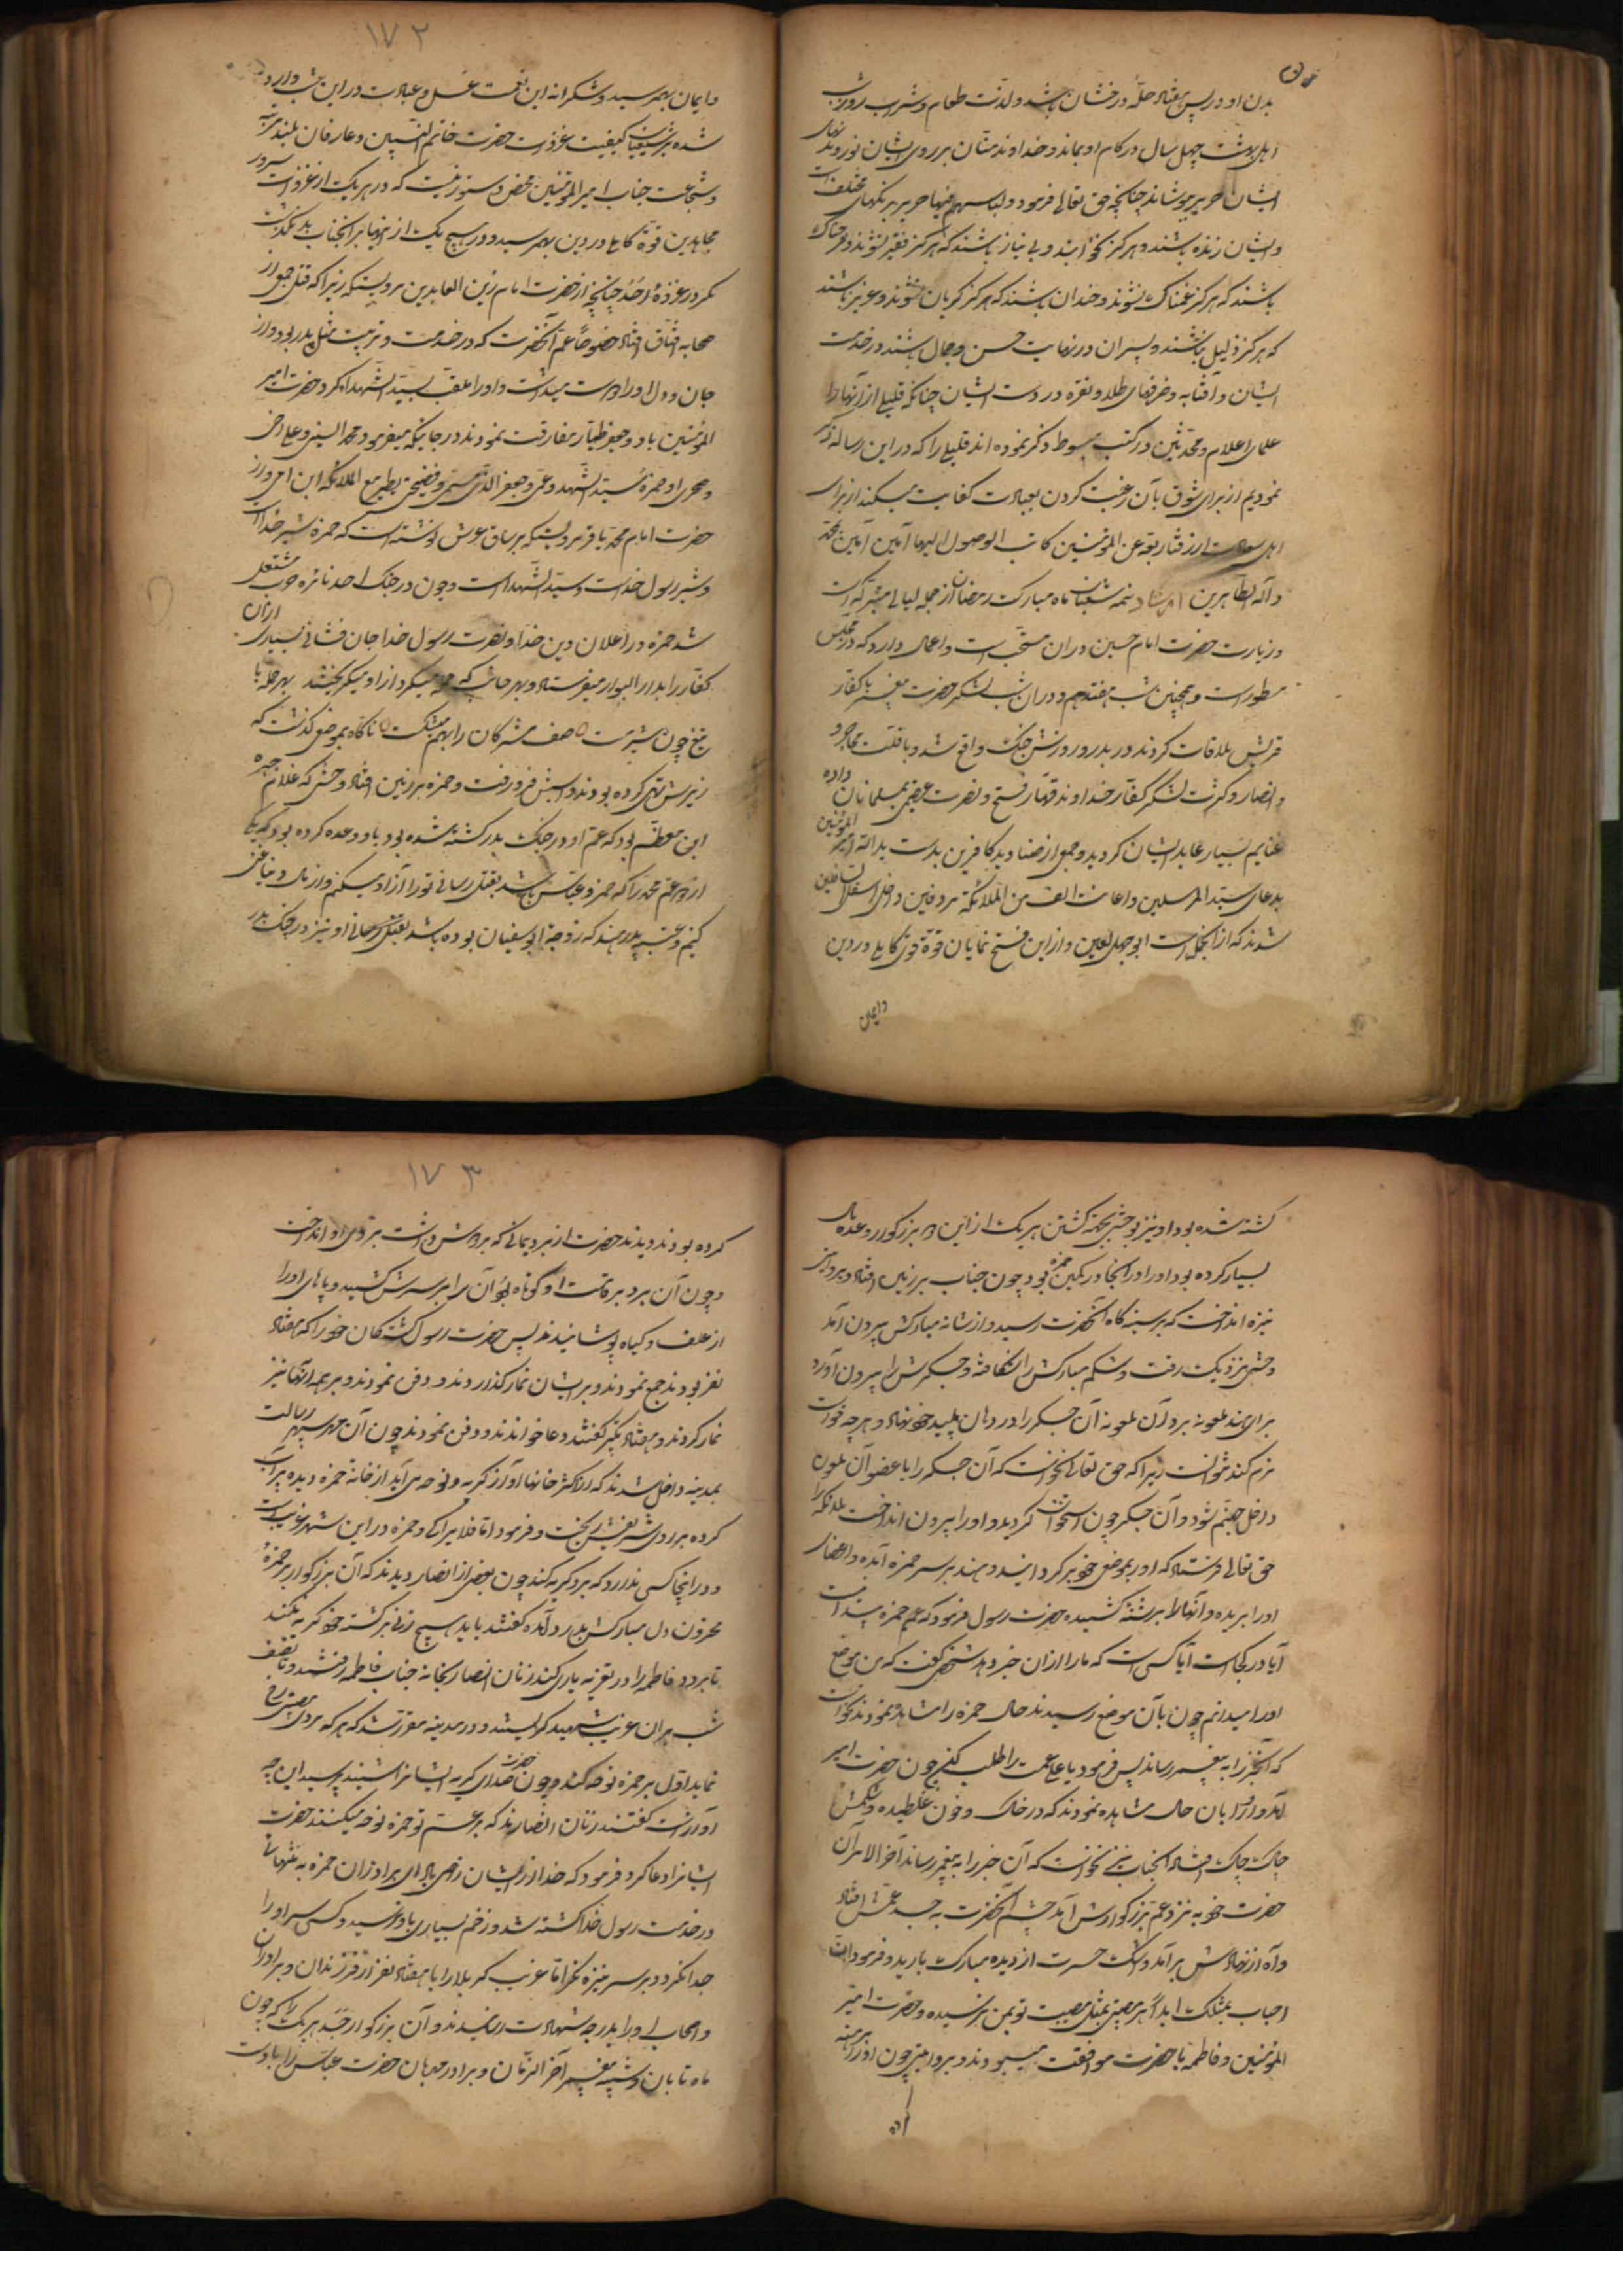 بدن او در پس هفتاد حله درخشان باشد و لذت طعام و شراب روز
اهل بهشت چهل سال در کام او بماند و خداوند منان بر روی ایشان نور و بدنهای
ایشان حریر پوشاند چنانچه حق تعالی فرمود و لباسهم فیها حریر برنگهای مختلف
و ایشان زنده باشند و هرگز نمیرند و بی نیاز باشند که هرگز فقیر نشوند و فرحناک
باشند که هرگز غمناک نشوند و خندان باشند که هرگز گریان نشوند و عزیز باشند
که هرگز ذلیل نباشند و پسران در نهایت حسن و جمال باشند در خدمت
ایشان و آفتابه و ظرفهای طلا و نقره در دست ایشان چنانکه قلیلی از آنها را
علمای اعلام و محدثین در کتب مبسوط ذکر نموده اند قلیلی را که در این رساله ذکر
نمودیم از برای شوق بآن و رغبت کردن بعبادت کفایت میکند از برای
اهل سعادت ارزقنا ربنا عن المؤمنین کافة الوصول الیها آمین آمین بمحمد
و آله الطاهرین نیمه شعبان ماه مبارک رمضان از جمله لیالی متبرکه است
و زیارت حضرت امام حسین در آن مستحب است و اعمال دارد که در مجلس
مسطور است و همچنین شب هفتدهم و در آن شب لشکر حضرت پیغمبر با کفار
قریش ملاقات کردند در بدر و روزش جنگ واقع شد و با قلت مهاجر
و انصار و کثرت لشکر کفار خداوند قهار فتح و نصرت عظیم بمسلمانان داده
غنایم بسیار عاید ایشان گردید و جمعی از صنادید کافرین بدست ید الله امیر المؤمنین
بدعای سید المرسلین و اعانت الف من الملائکة مردفین داخل اسفل السافلین
شدند که از آنجمله است ابوجهل لعین و از این فتح نمایان قوة و قوتی کامل در دین
وایمان
۱۷۲
و ایمان بهمرسید و شکرانه این نعمت غسل و عبادت در این شب وارد
شده بر شیعیان کیفیت غزوات حضرت خاتم النبیین و عارفان بلند مرتبه
و شجاعت جناب امیر المؤمنین مخفی و مستور نیست که در هر یک از غزوات سرور
مجاهدین قوة کامل در دین بهمرسید و در هیچ یک از آنها بر آنجناب بد نگذشت
مگر در غزوه احد چنانچه از حضرت امام زین العابدین مرویستکه زیرا که قتل جمعی از
صحابه اتفاق افتاد خصوصا عم آنحضرت که در خدمت و تربیت مثل پدر بود و از
جان و دل او را دوست میداشت و او را ملقب بسید الشهدا کرد و حضرت امیر
المؤمنین باو و جعفر طیار مفارقت نمودند در جائیکه میفرمود محمد النبی و علی اخی
و صهری و حمزه سید الشهدا و عمی و جعفر الذی یمسی و یضحی یطیر مع الملائکه ابن امی و از
حضرت امام محمد باقر مرویستکه بر ساق عرش نوشته است که حمزه شیر خداست
و شیر رسول خداست و سید الشهداست و چون در جنگ احد نائره حرب مشتعل
شد حمزه در اعلان دین خدا و نصرت رسول خدا جان فشانی بسیاری از آن
کفار را بدار البوار میفرستاد و بهر جانب که حمله میکرد از او میگریختند بهر حمله با
تیغ چون شیر مست صف مشرکان را بهم میشکست ناگاه بموضعی گذشت که
زیرش تهی کرده بودند و اسبش فرو رفت و حمزه بر زمین افتاد و وحشی که غلام جبیر
ابن مطعم بود که عم او در جنگ بدر کشته شده بود باو وعده کرده بود که یکی
از دو عم محمد را که حمزه و عباس باشد بقتل رسانی تو را آزاد میکنم و از مال دنیا غنی
کنم و عتبه پدر هند که زوجه ابو سفیان بوده باشد بقتل او نیز در جنگ بدر
کشته شده بود او نیز بوحشی بجهة کشتن هر یک از این دو بزرگوار وعده مال
بسیار کرده بود او را در آنجا در کمین حمزه بود چون جناب بر زمین افتاد
نیزه انداخت که بر سینه گاه آنحضرت رسید و از شانه مبارکش بیرون آمد
وحشی نزدیک رفت و شکم مبارکش را شکافته و جگرش را بیرون آورد
برای هند ملعونه برد آن ملعونه آن جگر را در دهان پلید خود نهاد و هر چه خواست
نرم کند نتوانست زیرا که حق تعالی نخواست که آن جگر با عضو آن ملعون
داخل جهنم شود و آن جگر چون استخوان گردید و او را بیرون انداخت ملائکه را
حق تعالی فرستاد که او را بموضع خود برگردانید و هند بر سر حمزه آمده و اعضای
او را بریده و آنها را برشته کشیده حضرت رسول فرمود که عم حمزه پیدا نیست
آیا در کجاست آیا کسی است که ما را از آن خبر دهد شخصی گفت که من موضع
او را میدانم چون بآن موضع رسیدند حال حمزه را مشاهده نمودند نخواست
که آنخبر را به پیغمبر رساند پس فرمود یا علی عمت را طلب کن چون حضرت امیر
آمد و او را بآن حال مشاهده نمودند که در خاک و خون غلطیده و شکمش
چاک چاک افتاده آنجناب نیز نخواست که آن خبر را به پیغمبر رساند آخر الامر آن
حضرت خود به نزد عم بزرگوارش آمد چشم آنحضرت به جسد عمش افتاد
و آه از نهادش بر آمد و اشک حسرت از دیده مبارک بارید و فرمود
اصاب بمثلک ابدا هرگز مصیبتی بمثل مصیبت تو بمن نرسیده و حضرت امیر
المؤمنین و فاطمه با حضرت موافقت مینمودند و بروایتی چون او را برهنه
۱۷۳
کرده بودند دیدند حضرت از برد یمانی که بر دوش داشت بر روی او انداخت
و چون آن برد بر قامت او کوتاه بود آن را بر سرش کشید و پاهای او را
از علف و گیاه پوشانیدند پس حضرت رسول کشتگان خود را که هفتاد
نفر بودند جمع نمودند و بر ایشان نماز گذاردند و دفن نمودند و بر همه آنها نیز
نماز کردند و هفتاد تکبیر گفتند و دعا خواندند و دفن نمودند چون آن مهر سپهر رسالت
بمدینه داخل شدند که از اکثر خانها آواز گریه و نوحه می آید از خانه حمزه دیده پر آب
کرده بر روی شریفش ریخت و فرمود اما فلا بواکی و حمزه در این شهر غریبست
و در اینجا کسی ندارد که بر او گریه کند چون بعضی از انصار دیدند که آن بزرگوار بر حمزه
محزون دل مبارکش بدرد آمده گفتند باید هیچ زنی بر کشته خود گریه نکند
تا برود فاطمه را در تعزیه یاری کند زنان انصار بخانه جناب فاطمه رفتند و تا نصف
شب بر آن غریب شهید گریستند و در مدینه مقرر شد که هر که بر وی مصیبتی رخ
نماید اول بر حمزه نوحه کند و چون حضرت صدای گریه ایشانرا شنید پرسید این چه
آواز است گفتند زنان انصارند که بر عم تو حمزه نوحه میکنند حضرت
ایشانرا دعا کرد و فرمود که خدا از ایشان راضی باد ای برادران حمزه به تنهائی
در خدمت رسول خدا کشته شد و زخم بسیاری باو نرسید و کسی سر او را
جدا نکرد و بر سر نیزه نکرد اما غریب کربلا را با هفتاد نفر از فرزندان و برادران
و اصحاب او را بدرجه شهادت رسانیدند و آن بزرگوار جسد هر یک را که چون
ماه تابان و شبیه پیغمبر آخر الزمان و برادر مهربان حضرت عباس را با دست